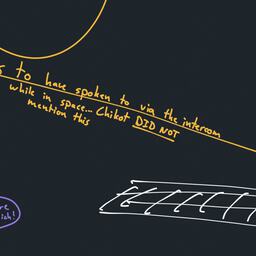 to have spoken to via the intercom
while in space... Chikot DID NOT
mention this